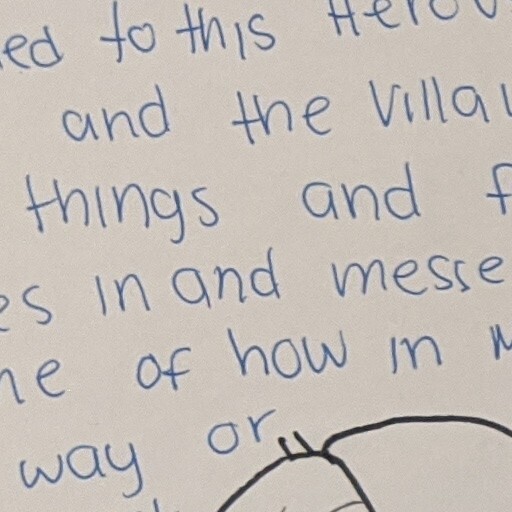 ed to this Hero
and the Villai
things and f
es in and messe
ne of how in M
way or